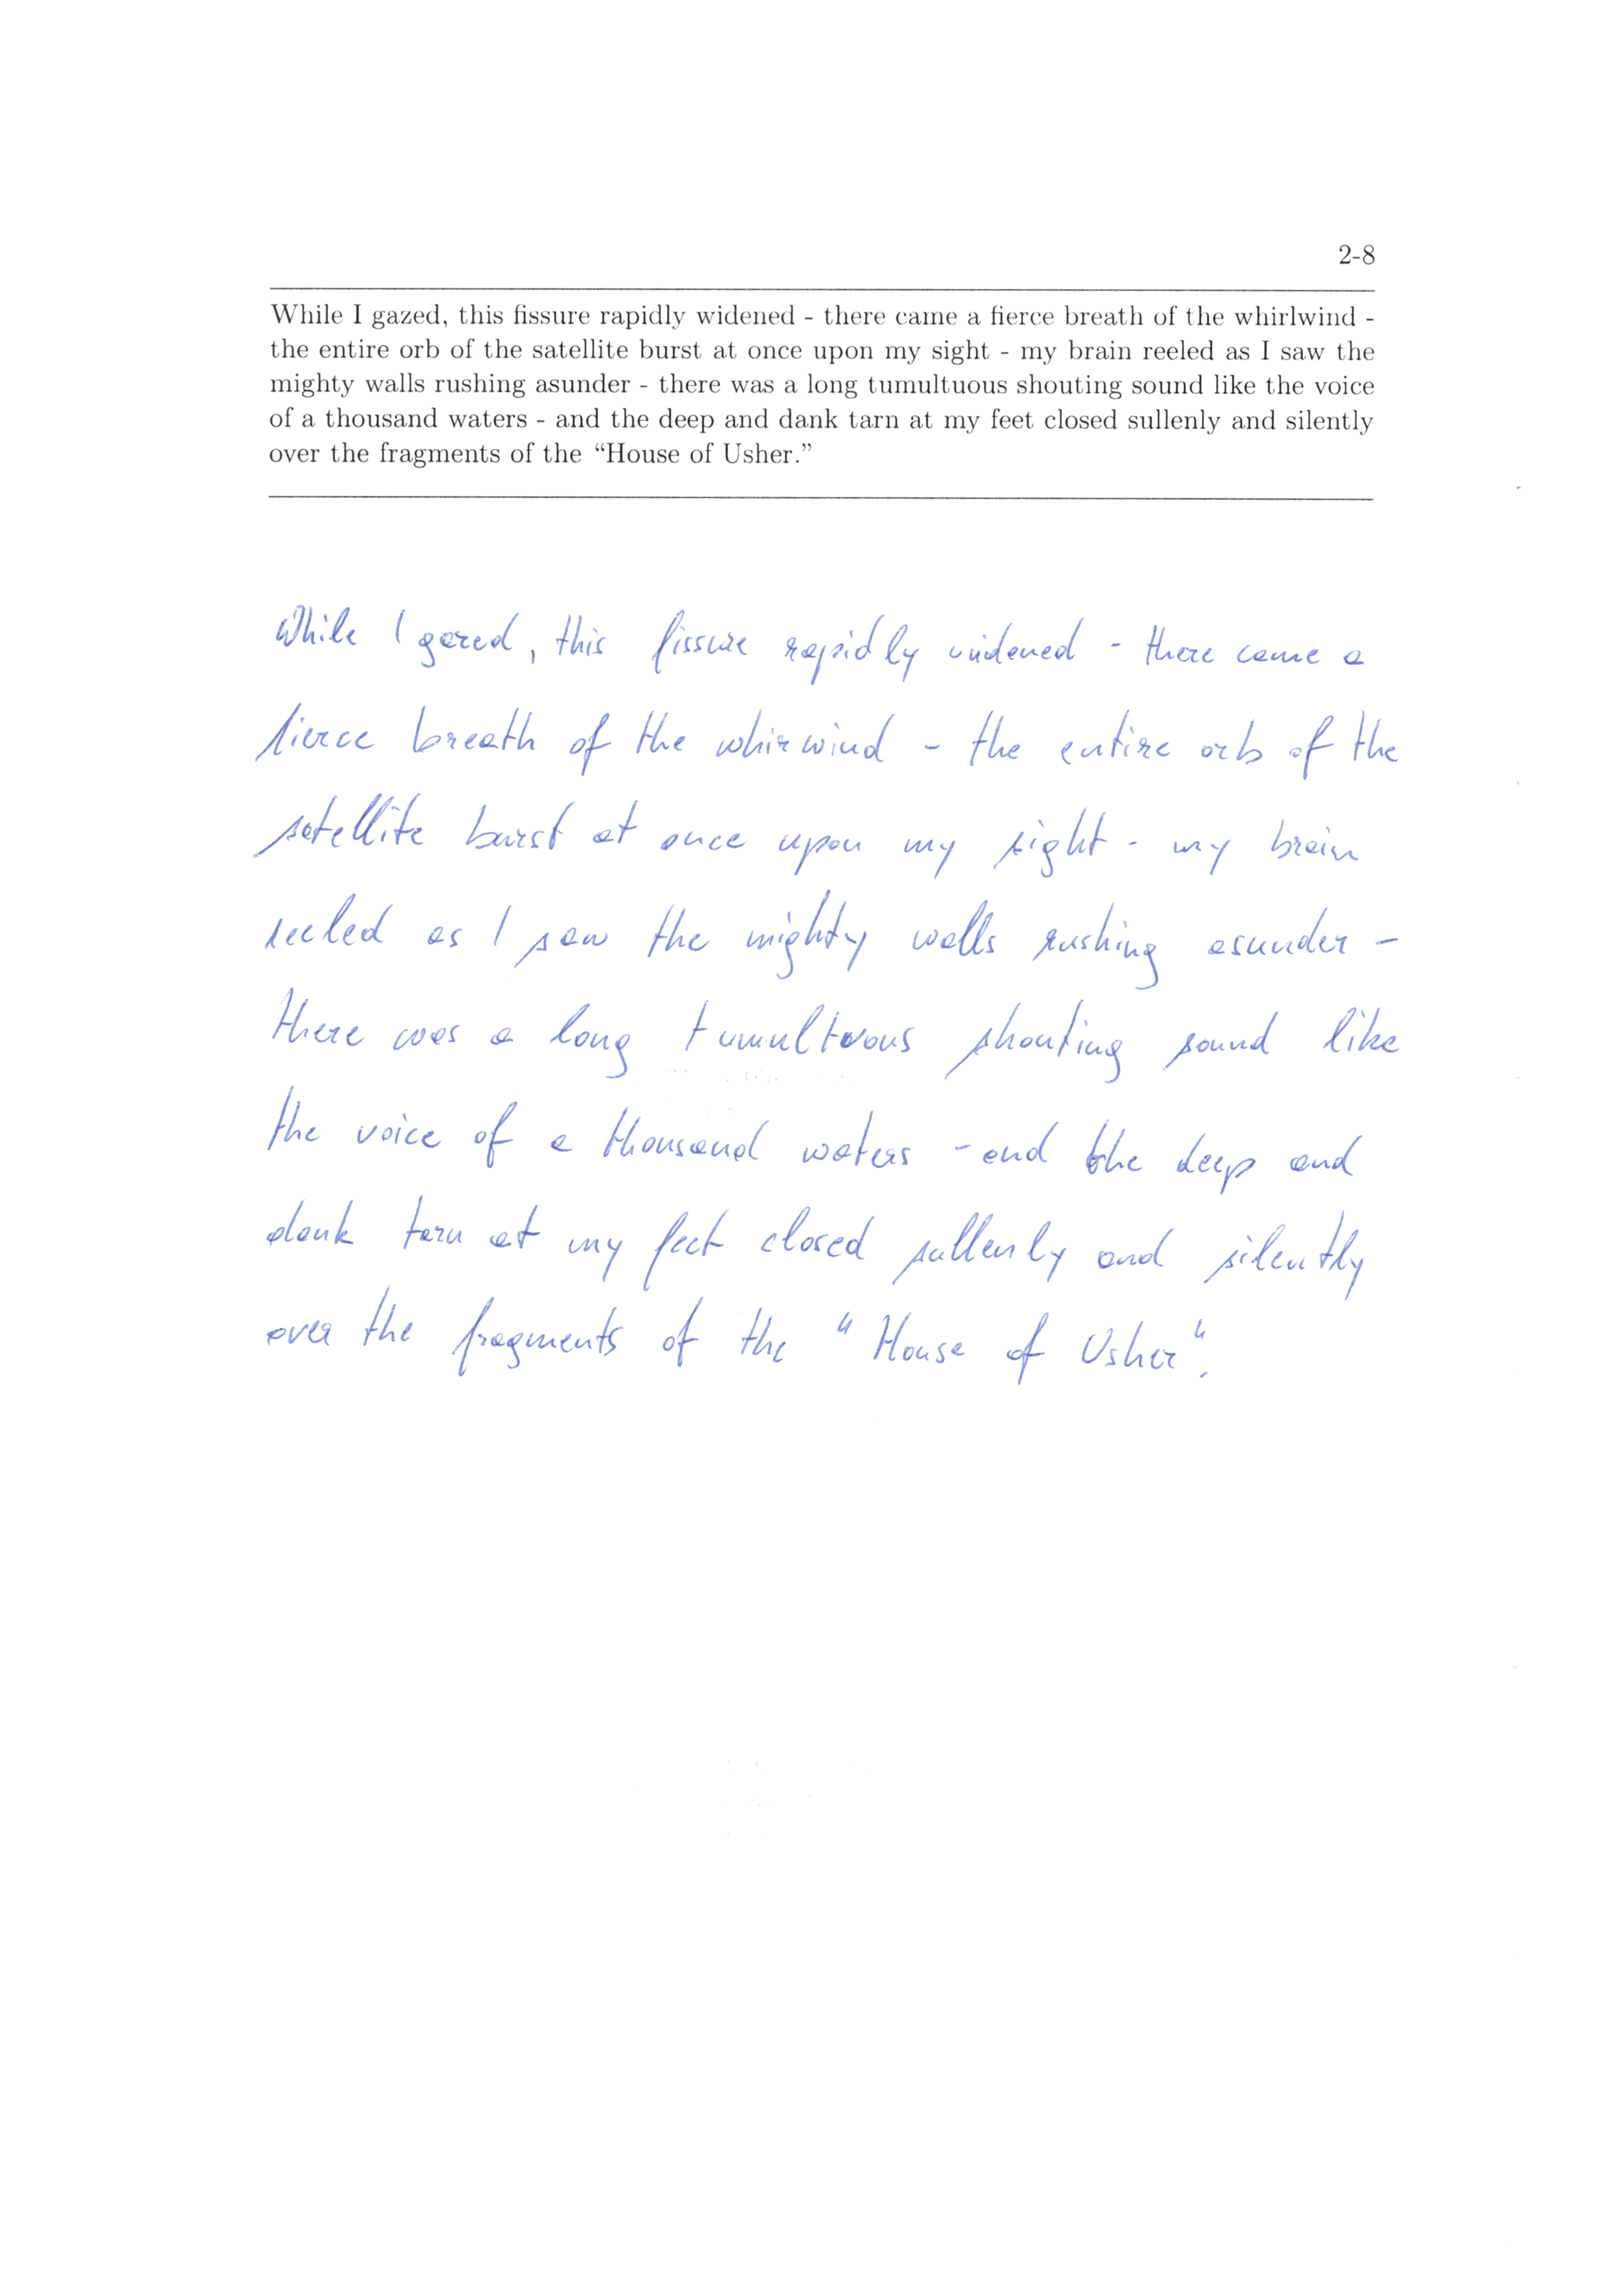 2-8
While I gazed, this fissure rapidly widened - there came a fierce breath of the whirlwind -
the entire orb of the satellite burst at once upon my sight - my brain reeled as I saw the
mighty walls rushing asunder - there was a long tumultuous shouting sound like the voice
of a thousand waters - and the deep and dank tarn at my feet closed sullenly and silently
over the fragments of the “House of Usher.”
While I gazed, this fissure rapidly widened - there came a
fierce breath of the whirwind - the entire orb of the
satellite burst at once upon my sight - my brain
reeled as I saw the mighty walls rushing asunder -
there was a long tumultuous shouting sound like
the voice of a thousand waters - and the deep and
dank tarn at my feet closed sullenly and silently
over the fragments of the "House of Usher".